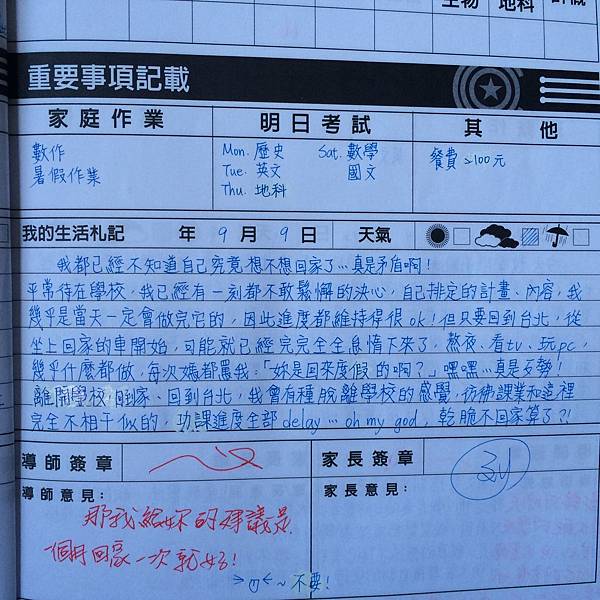 生物 地科
重要事項記載
家庭作業 明日考試 其他
數作 Mon. 歷史 Sat. 數學 餐費2100元
暑假作業 Tue. 英文 國文
Thu. 地科
我的生活札記 年 9 月 9 日 天氣
我都已經不知道自己究竟想不想回家了…真是矛盾啊!
平常待在學校,我已經有一刻都不敢鬆懈的決心,自己排定的計畫、內容,我
幾乎是當天一定會做完它的,因此進度都維持得很ok!但只要回到台北,從
坐上回家的車開始,可能就已經完完全全怠惰下來了,熬夜、看tv、玩pc,
幾乎什麼都做,每次媽都罵我:「妳是回來度假的啊?」嘿嘿…真是歹勢!
離開學校,回家、回到台北,我會有種脫離學校的感覺,彷彿課業和這裡
完全不相干似的,功課進度全部delay…oh my god,乾脆不回家算了?!
導師簽章 家長簽章
導師意見: 家長意見:
那我給妳的建議是
一個月回家一次就好!
不要!